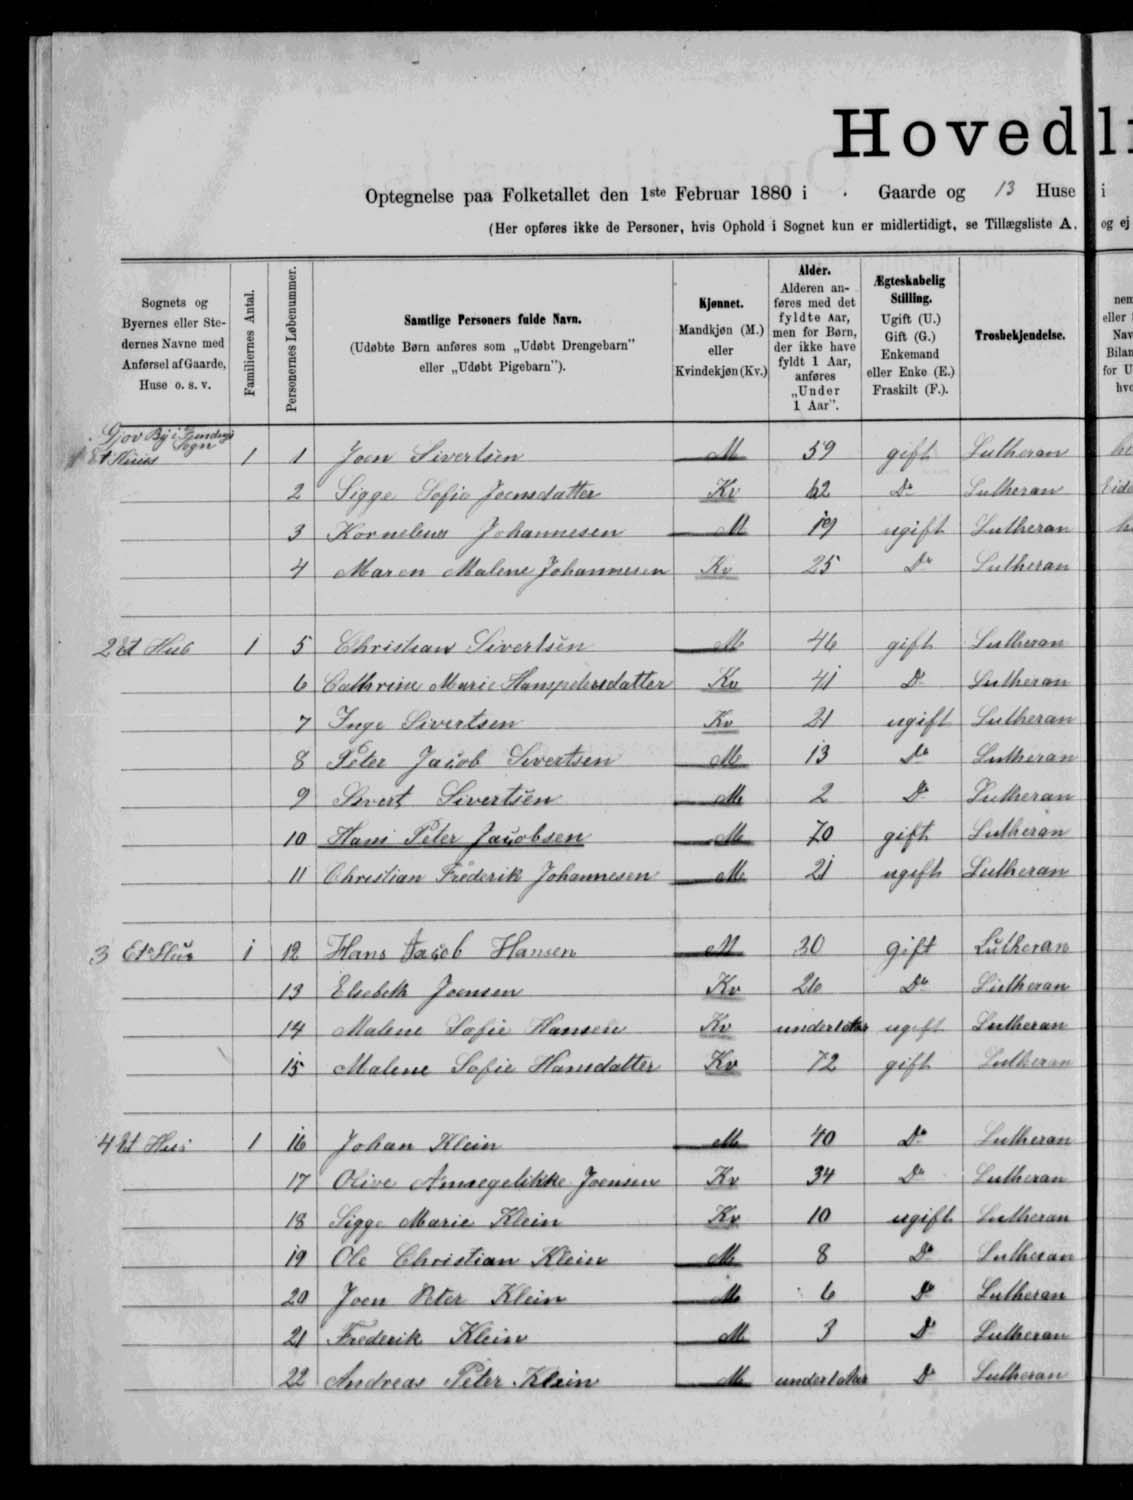 Hovedli
Optegnelse paa Folketallet den 1ste Februar 1880 i . Gaarde og 13 Huse i
(Her opføres ikke de Personer, hvis Ophold i Sognet kun er midlertidigt, se Tillægsliste A, og ej
Sognets og Byernes eller Stedernes Navne med Anførsel af Gaarde, Huse o. s. v.
Familiernes Antal.
Personernes Løbenummer.
Samtlige Personers fulde Navn.
(Udøbte Børn anføres som „Udøbt Drengebarn" eller „Udøbt Pigebarn").
Kjønnet.
Mandkjøn (M.) eller Kvindekjøn (Kv.)
Alder.
Alderen anføres med det fyldte Aar, men for Børn, der ikke have fyldt 1 Aar, anføres „Under 1 Aar".
Ægteskabelig Stilling.
Ugift (U.) Gift (G.) Enkemand eller Enke (E.) Fraskilt (F.).
Trosbekjendelse.
Gjov By i Sogn
1 Et Huus 1 1 Joen Sivertsen M 59 gift Lutheran
2 Sigge Sofie Joensdatter Kv 62 Do Lutheran
3 Kornelius Johannesen M 19 ugift Lutheran
4 Maren Malene Johannesen Kv 25 Do Lutheran
2 Et Hus 1 5 Christian Sivertsen M 46 gift Lutheran
6 Cathrine Marie Hanspetersdatter Kv 41 Do Lutheran
7 Inge Sivertsen Kv 21 ugift Lutheran
8 Peter Jacob Sivertsen M 13 Do Lutheran
9 Sivert Sivertsen M 2 Do Lutheran
10 Hans Peter Jacobsen M 70 gift Lutheran
11 Christian Frederik Johannesen M 21 ugift Lutheran
3 Et Hus 1 12 Hans Jacob Hansen M 30 gift Lutheran
13 Elsebeth Joensen Kv 26 Do Lutheran
14 Malene Sofie Hansen Kv under 1 Aar ugift Lutheran
15 Malene Sofie Hansdatter Kv 72 gift Lutheran
4 Et Hus 1 16 Johan Klein M 40 Do Lutheran
17 Olive Annegelikke Joensen Kv 34 Do Lutheran
18 Sigge Marie Klein Kv 10 ugift Lutheran
19 Ole Christian Klein M 8 Do Lutheran
20 Joen Peter Klein M 6 Do Lutheran
21 Frederik Klein M 3 Do Lutheran
22 Andreas Peter Klein M under 1 Aar Do Lutheran